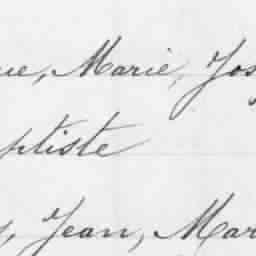 ue, Marie, Jos
ptiste
, Jean, Mar